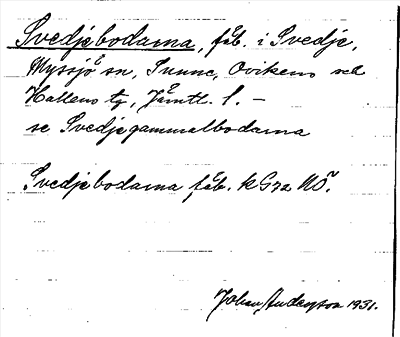 Svedjebodarna, fäb. i Svedje,
Myssjö sn, Sunne, Ovikens och
Hallens tg, Jämtl. l. –
se Svedjegammalbodarna
Svedjebodarna fäb. kG72 NÖ.
Johan Anderson 1931.